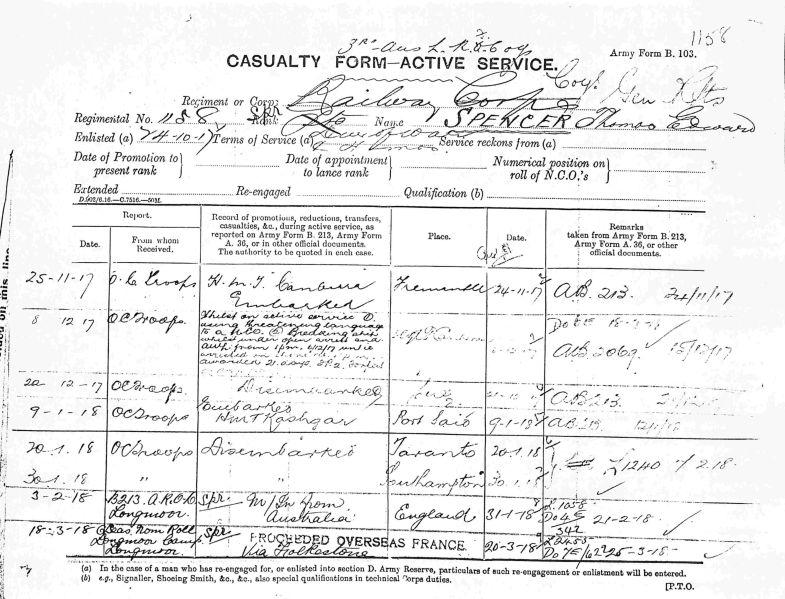 1158
3rd Aus L. R. O. Coy
Army Form B. 103.
CASUALTY FORM—ACTIVE SERVICE.
Coy. Gen Rfts
Regiment or Corps Railway Corps
Regimental No. 1158 Spr Rank Pte Name SPENCER Thomas Edward
Enlisted (a) 14-10-17 Terms of Service (a) Service reckons from (a)
Date of Promotion to present rank
Date of appointment to lance rank
Numerical position on roll of N.C.O.'s
Extended Re-engaged Qualification (b)
Report.
Date.
From whom Received.
Record of promotions, reductions, transfers, casualties, &c., during active service, as reported on Army Form B. 213, Army Form A. 36, or in other official documents. The authority to be quoted in each case.
Place.
Date.
Remarks taken from Army Form B. 213, Army Form A. 36, or other official documents.
25-11-17 O.C Troops H.M.T Canberra Embarked Fremantle 24-11-17 AB.213. 24/11/17
8 12 17 OC Troops. Whilst on active service ① using threatening language to a N.C.O. ② Breaking ship whilst under open arrest and AWL from 1pm. 6/12/17 until
awarded 21 days F.P.2
AB 2069 15/12/17
22 12-17 OC Troops Disembarked Suez AB 213.
9-1-18 OC Troops Embarked HMT Kashgar Port Said 9-1-18 AB 213.
20.1.18 OC Troops Disembarked Taranto 20.1.18
L1240 2.18
30.1.18 " " Southampton 30.1.18
3-2-18 B213. A.R.O.D Longmoor Spr. M/In from Australia England 31-1-18 L.1058 Do 45 21-2-18.
18-3-18 Nom Roll Longmoor Camp. Longmoor. Spr PROCEEDED OVERSEAS FRANCE. Via Folkestone 20-3-18 L2455 Do 75/ 25-3-18-
(a) In the case of a man who has re-engaged for, or enlisted into section D. Army Reserve, particulars of such re-engagement or enlistment will be entered.
(b) e.g., Signaller, Shoeing Smith, &c., &c., also special qualifications in technical Corps duties.
[P.T.O.